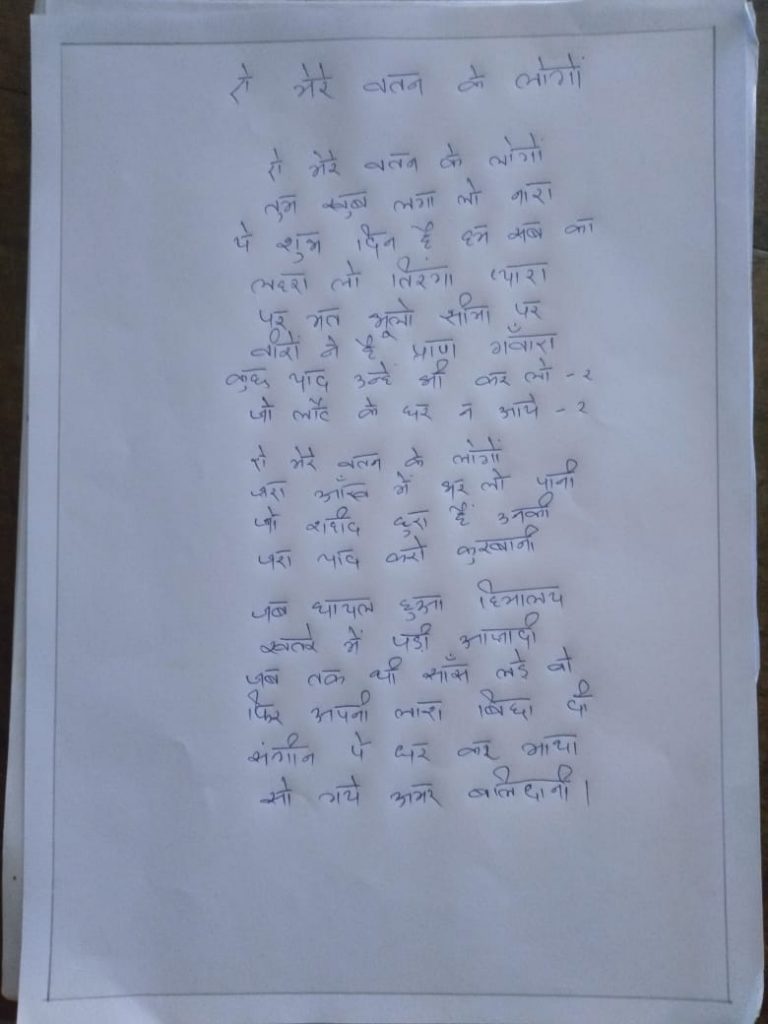 ऐ मेरे वतन के लोगों
ऐ मेरे वतन के लोगों
तुम खुब लगा लो नारा
ये शुभ दिन है हम सब का
लहरा लो तिरंगा प्यारा
पर मत भूलो सीमा पर
वीरों ने है प्राण गँवारा
कुछ याद उन्हें भी कर लो -२
जो लौट के घर न आये -२
ऐ मेरे वतन के लोगों
जरा आँख में भर लो पानी
जो शहीद हुए हैं उनकी
जरा याद करो कुरबानी
जब घायल हुआ हिमालय
खतरे में पड़ी आजादी
जब तक थी साँस लड़े वो
फिर अपनी लाश बिछा दी
संगीन पे धर कर माथा
सो गये अमर बलिधानी।